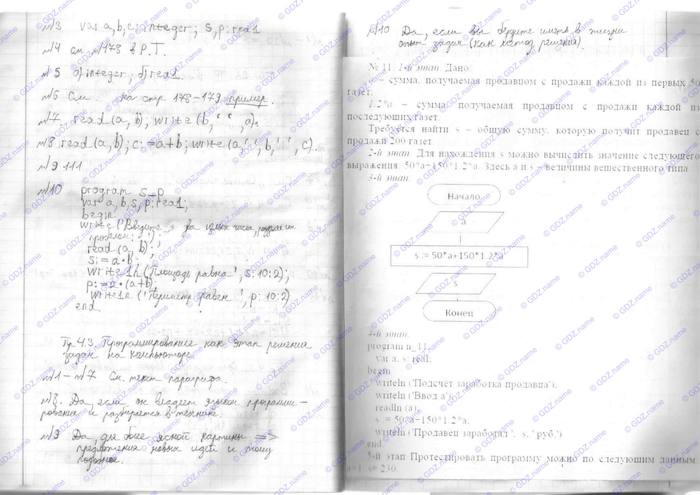 №3 var a, b, c: integer; s, p: real
№4 см. №173 в Р.Т.
№5 a) integer; б) real
№6 См. на стр 178-179 пример.
№7. read (a, b); write (b, ' ', a).
№8 read (a, b); c:=a+b; write (a, ' ', b, ' ', c).
№9 111
№10 program s_p
var a, b, s, p: real;
begin
write ('Введите два числа,
read (a, b);
s:=a*b;
writeln ('Площадь равна', s:10:2);
p:=2*(a+b);
writeln ('Периметр равен', p:10:2)
end
4.3. Программирование как этап решения
задач на компьютере
№1-№7 См. текст параграфа.
№8. Да, если он владеет языком программи-
рования и разбирается в технике.
№9 Да, для более ясной картины =>
предложения новых идей и
№10 Да, если вы будете иметь в жизни
опыт задач (как метод решения).
№ 11. 1-й этап. Дано:
– сумма, получаемая продавцом с продажи каждой из первых 50
газет.
1.2*a – сумма, получаемая продавцом с продажи каждой из
последующих газет.
Требуется найти s – общую сумму, которую получит продавец с
продажи 200 газет.
2-й этап. Для нахождения s можно вычислить значение следующего
выражения: 50*a+150*1.2*a. Здесь a и s – величины вещественного типа
3-й этап.
Начало
a
s := 50*a+150*1.2*a
s
Конец
4-й этап.
program n_11;
var a, s: real;
begin
writeln ('Подсчет заработка продавца');
writeln ('Ввод a');
readln (a);
s := 50*a+150*1.2*a;
writeln ('Продавец заработал ', s, ' руб.')
end.
5-й этап Протестировать программу можно по следующим данным
230.
© GDZ.name